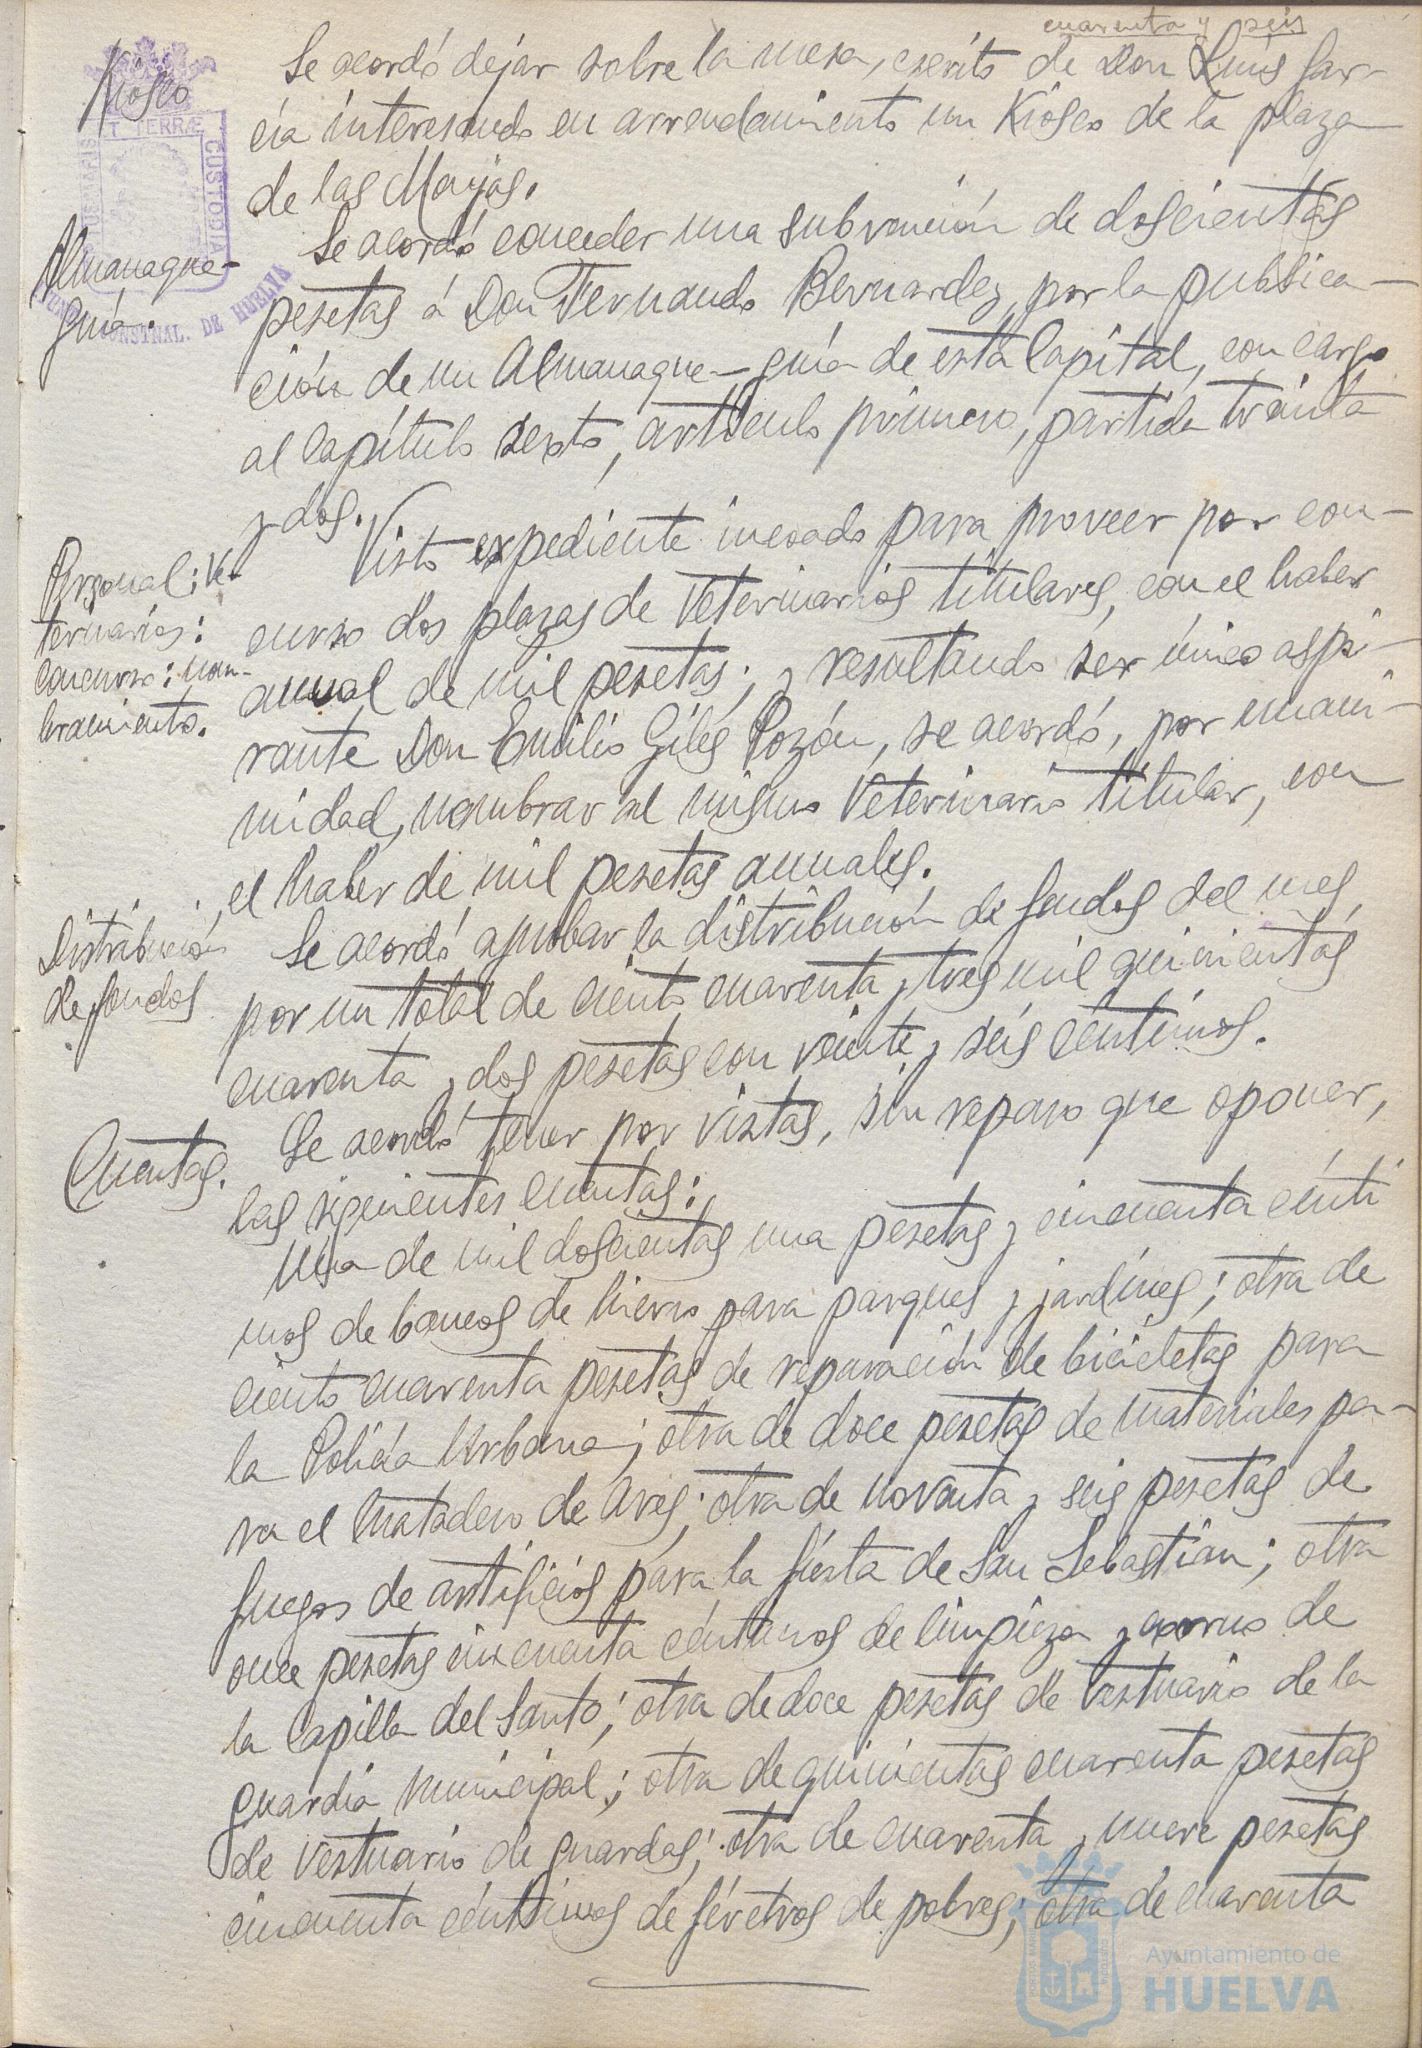 cuarenta y seis
Kiosco
Se acordó dejar sobre la mesa, escrito de Don Luis Gar-
cía interesando en arrendamiento un Kiosco de la plaza
de las Monjas.
Almanaque-
guía.
Se acordó conceder una subvención de doscientas
pesetas á Don Fernando Bernardez, por la publica-
ción de un Almanaque-guía de esta Capital, con cargo
al Capítulo sexto, artículo primero, partida treinta
y dos.
Personal: Ve-
terinarios:
concurso: nom-
bramiento.
Visto expediente incoado para proveer por con-
curso dos plazas de Veterinarios titulares, con el haber
anual de mil pesetas; y resultando ser único aspi-
rante Don Emilio Giles Pozón, se acordó, por unani-
midad, nombrar al mismo Veterinario titular, con
el haber de mil pesetas anuales.
Distribución
de fondos
Se acordó aprobar la distribución de fondos del mes,
por un total de ciento cuarenta y tres mil quinientas
cuarenta y dos pesetas con veinte y seis céntimos.
Cuentas.
Se acordó tener por vistas, sin reparo que oponer,
las siguientes cuentas:
Una de mil doscientas una pesetas y cincuenta cénti
mos de bancos de hierro para parques y jardines; otra de
ciento cuarenta pesetas de reparación de bicicletas para
la Policía Urbana; otra de doce pesetas de materiales pa-
ra el Matadero de Aves; otra de noventa y seis pesetas de
fuegos de artificios para la fiesta de San Sebastian; otra
once pesetas cincuenta céntimos de limpieza y exorno de
la Capilla del Santo; otra de doce pesetas de vestuario de la
guardia municipal; otra de quinientas cuarenta pesetas
de vestuario de guardas; otra de cuarenta y nueve pesetas
cincuenta céntimos de féretros de pobres; otra de cuarenta
T TERRÆ
CUSTODIA
CONSTNAL. DE HUELVA
Ayuntamiento de
HUELVA